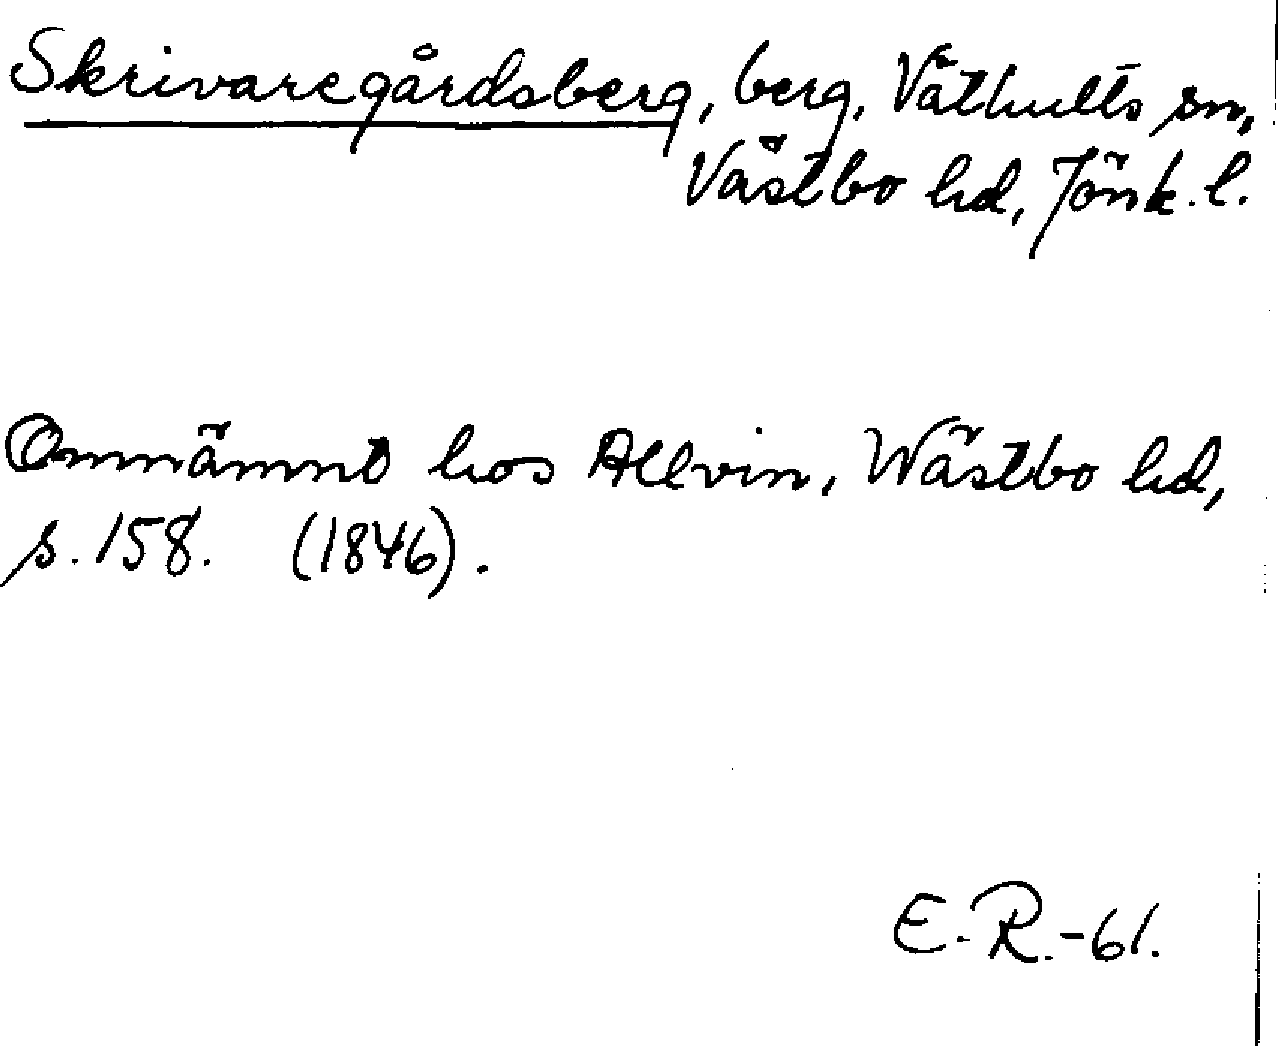 Skrivaregårdsberg, berg, Våthults sn,
Västbo hd, Jönk. l.
Omnämnt hos Allvin, Wästbo hd,
s. 158. (1846).
E. R. -61.